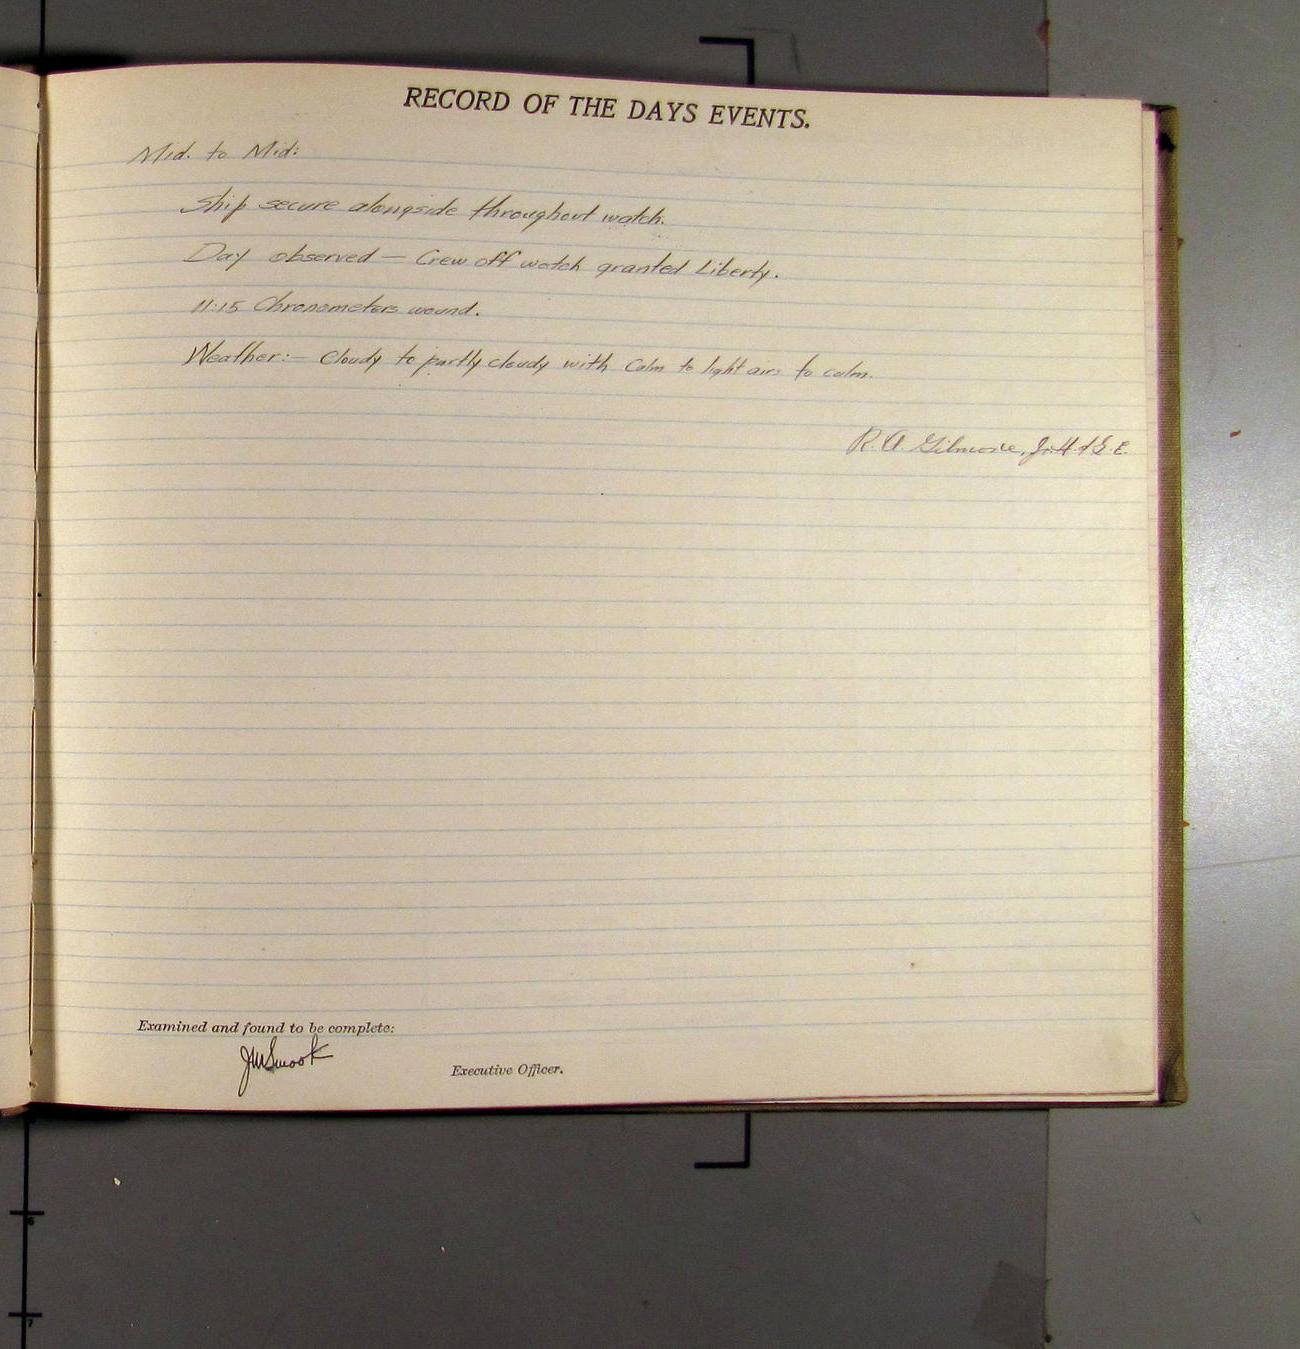 RECORD OF THE DAYS EVENTS.
Mid. to Mid:
Ship secure alongside throughout watch.
Day observed — Crew off watch granted Liberty.
11:15 Chronometers wound.
Weather:— Cloudy to partly cloudy with Calm to light airs to calm.
R. A. Gilmore, Jr. H. & G. E.
Examined and found to be complete:
JWSmook
Executive Officer.
6
7